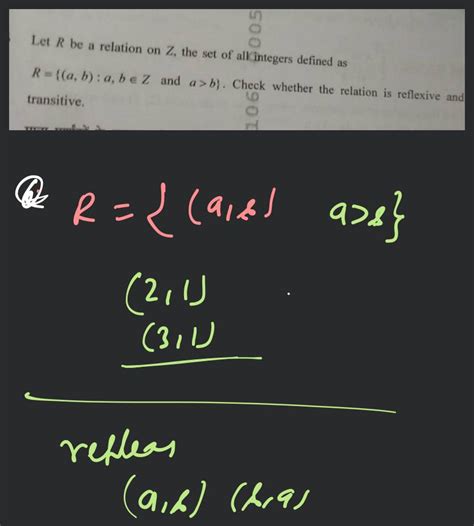 Let R be a relation on Z, the set of all integers defined as
R = {(a, b) : a, b ∈ Z and a > b}. Check whether the relation is reflexive and
transitive.
R = { (a, b) a > b}
(2, 1)
(3, 1)
(a, b) (b, a)